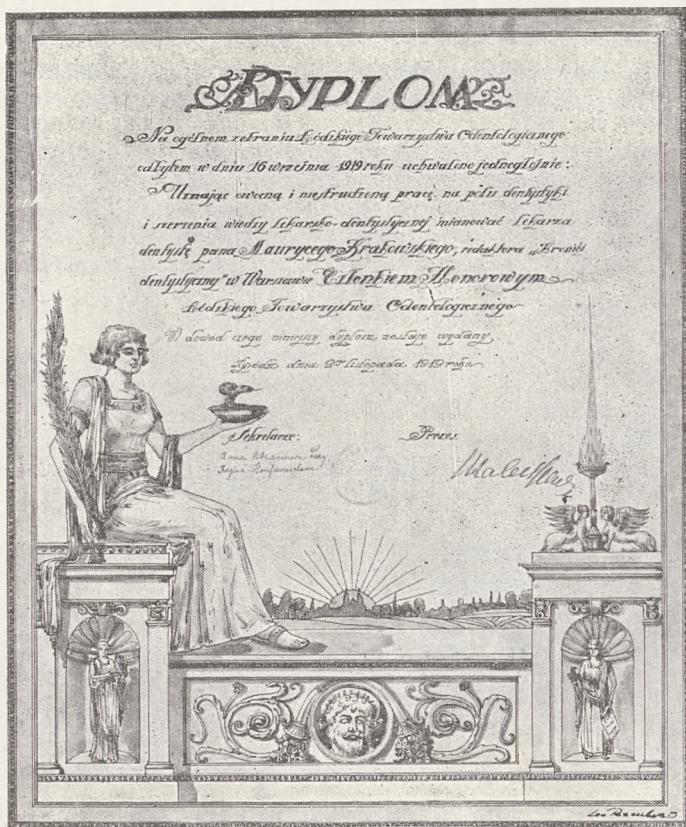 DYPLOM
Na ogólnem zebraniu Łódzkiego Towarzystwa Odontologicznego
odbytem w dniu 16 września 1919 roku uchwalono jednogłośnie:
Uznając owocną i niestrudzoną pracę na polu dentystyki
i szerzenia wiedzy lekarsko-dentystycznej mianować lekarza
dentystę pana Maurycego Krakowskiego, redaktora „Kroniki
dentystycznej" w Warszawie Członkiem Honorowym
Łódzkiego Towarzystwa Odontologicznego
W dowód czego niniejszy dyplom zostaje wydany
Łódź dnia listopada 1919 roku
Sekretarze: Prezes:
Anna
Regina